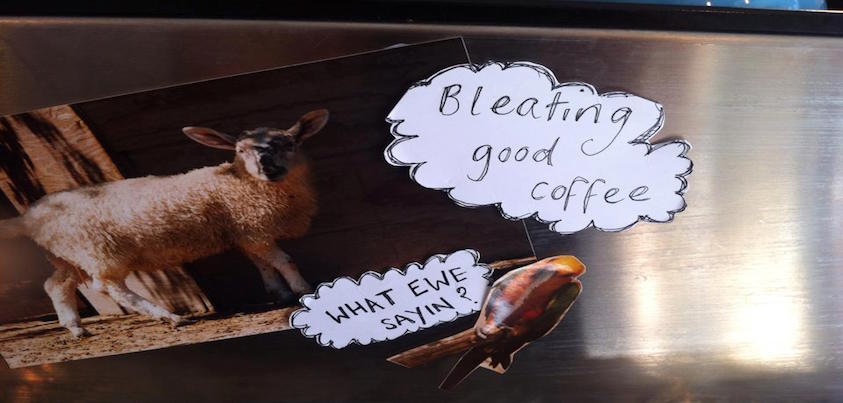 Bleating
good
coffee
WHAT EWE
SAYIN?